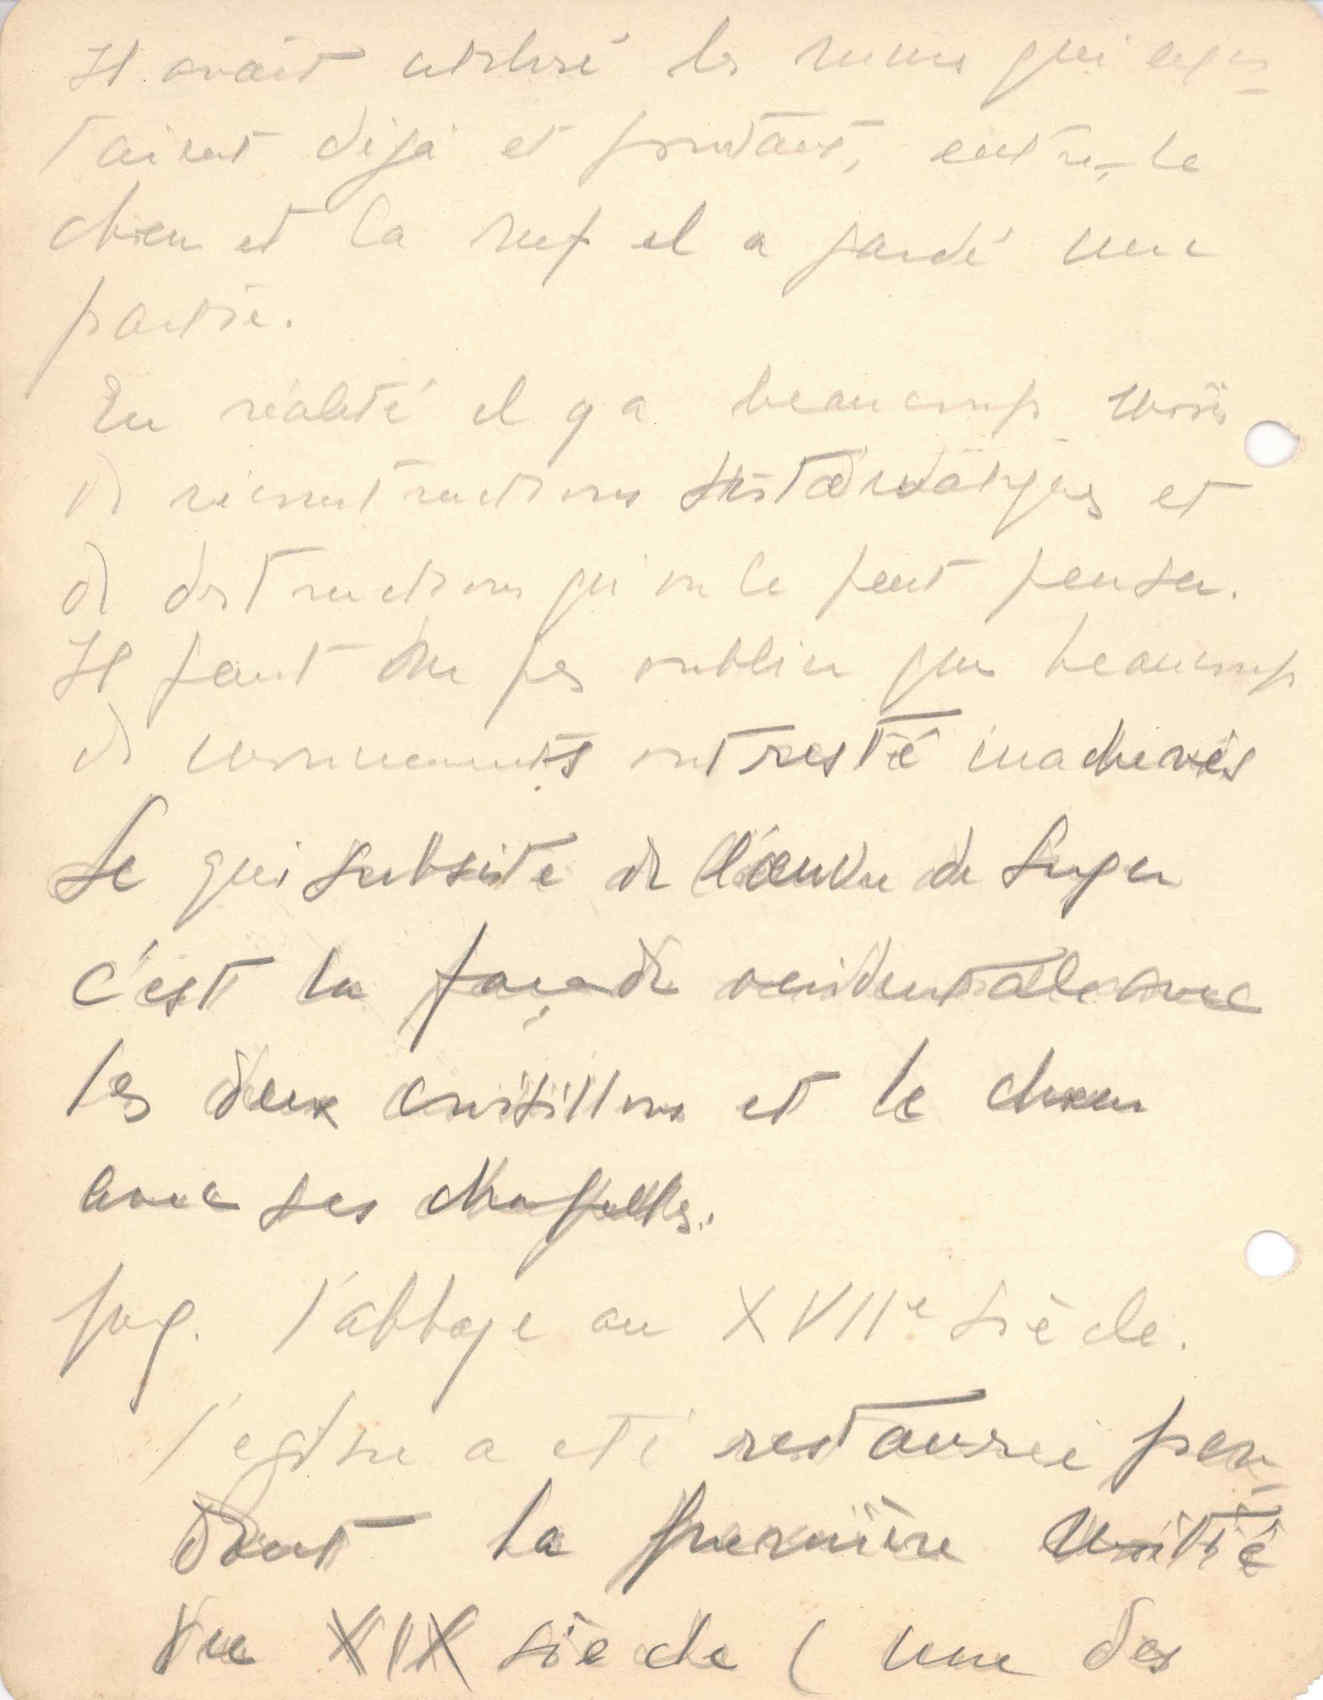 Il avait utilisé les ruines qui exis-
taient déjà et pourtant, entre le
chœur et la nef il a gardé une
partie.
En réalité il y a beaucoup moins
de reconstructions systématiques et
de destructions qu'on le peut penser.
Il faut ne pas oublier que beaucoup
de monuments ont resté inachevés
Ce qui subsiste de l'œuvre de Suger
c'est la façade occidentale avec
les deux croisillons et le chœur
avec ses chapelles.
l'abbaye au XVIIe siècle.
l'église a été restaurée pen-
dant la première moitié
du XIX siècle ( une des